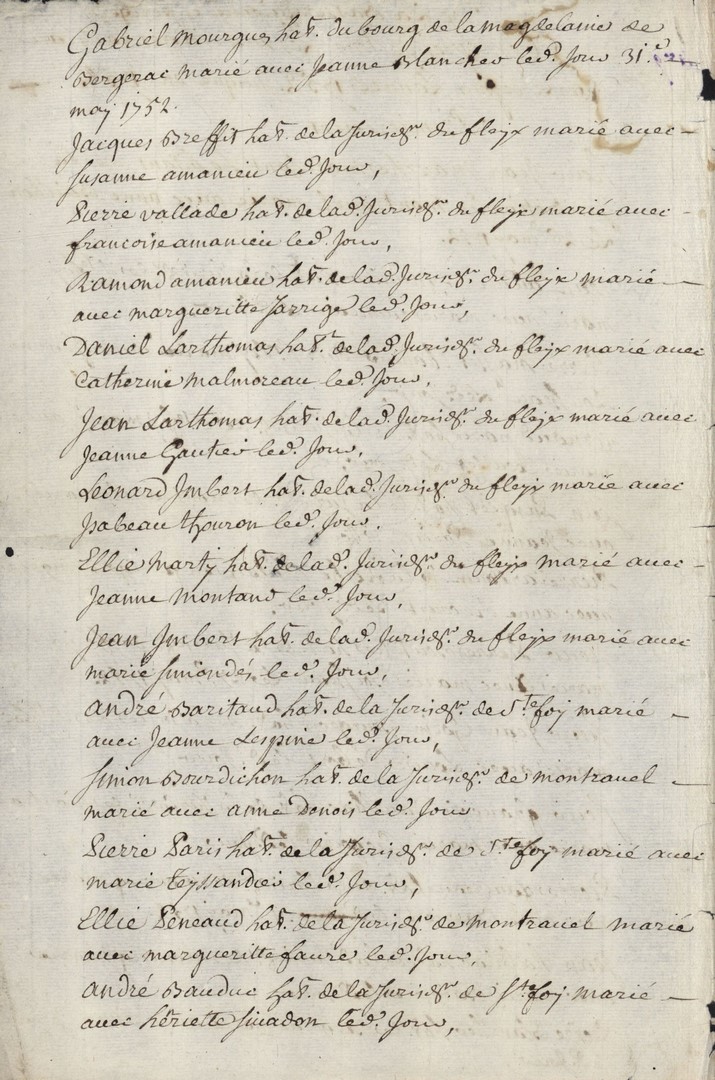 Gabriel mourgues hat. du bourg de la magdelaine de
Bergerac marié avec Jeanne Blancher led. Jour 31.e
maj 1752.
Jacques Breffit hat. de la Jurisdon. du fleyx marié avec
susanne amanieu led. Jour,
Pierre vallade hat. de lad. Jurisdon. du fleyx marié avec
francoise amanieu led. Jour,
Ramond amanieu hat. de lad. Jurisdon. du fleyx marié
avec margueritte Jarrige led. Jour,
Daniel Larthomas hat. de lad. Jurisdon. du fleyx marié avec
Catherine malmoreau led. Jour,
Jean Larthomas hat. de lad. Jurisdon. du fleyx marié avec
Jeanne Gautier led. Jour,
Leonard Jmbert hat. de lad. Jurisdon. du fleyx marié avec
Jsabeau thouron led. Jour,
Ellie marty hat. de lad. Jurisdon. du fleyx marié avec
Jeanne montand led. Jour,
Jean Jmbert hat. de lad. Jurisdon. du fleyx marié avec
marie simondés led. Jour,
andré Baritaud hat. de la Jurisdon. de ste foy marié
avec Jeanne Lespine led. Jour,
simon Bourdichon hat. de la Jurisdon. de montravel
marié avec anne Donois led. Jour
Pierre Paris hat. de la Jurisdon. de ste foy marié avec
marie teyssandier led. Jour,
Ellie Peneaud hat. de la Jurisdon. de montravel marié
avec margueritte faure led. Jour,
andré Bauduc hat. de la Jurisdon. de ste foy marié
avec hëriette sivadon led. Jour,